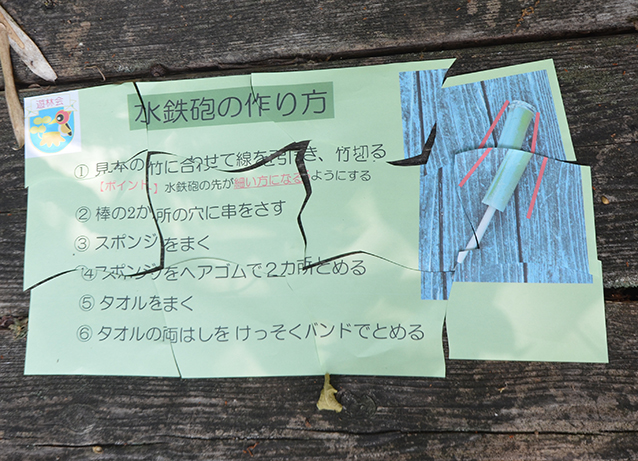 遊林会
水鉄砲の作り方
① 見本の竹に合わせて線を引き、竹切る
【ポイント】水鉄砲の先が細い方になるようにする
② 棒の2か所の穴に串をさす
③ スポンジをまく
④ スポンジをヘアゴムで２カ所とめる
⑤ タオルをまく
⑥ タオルの両はしをけっそくバンドでとめる